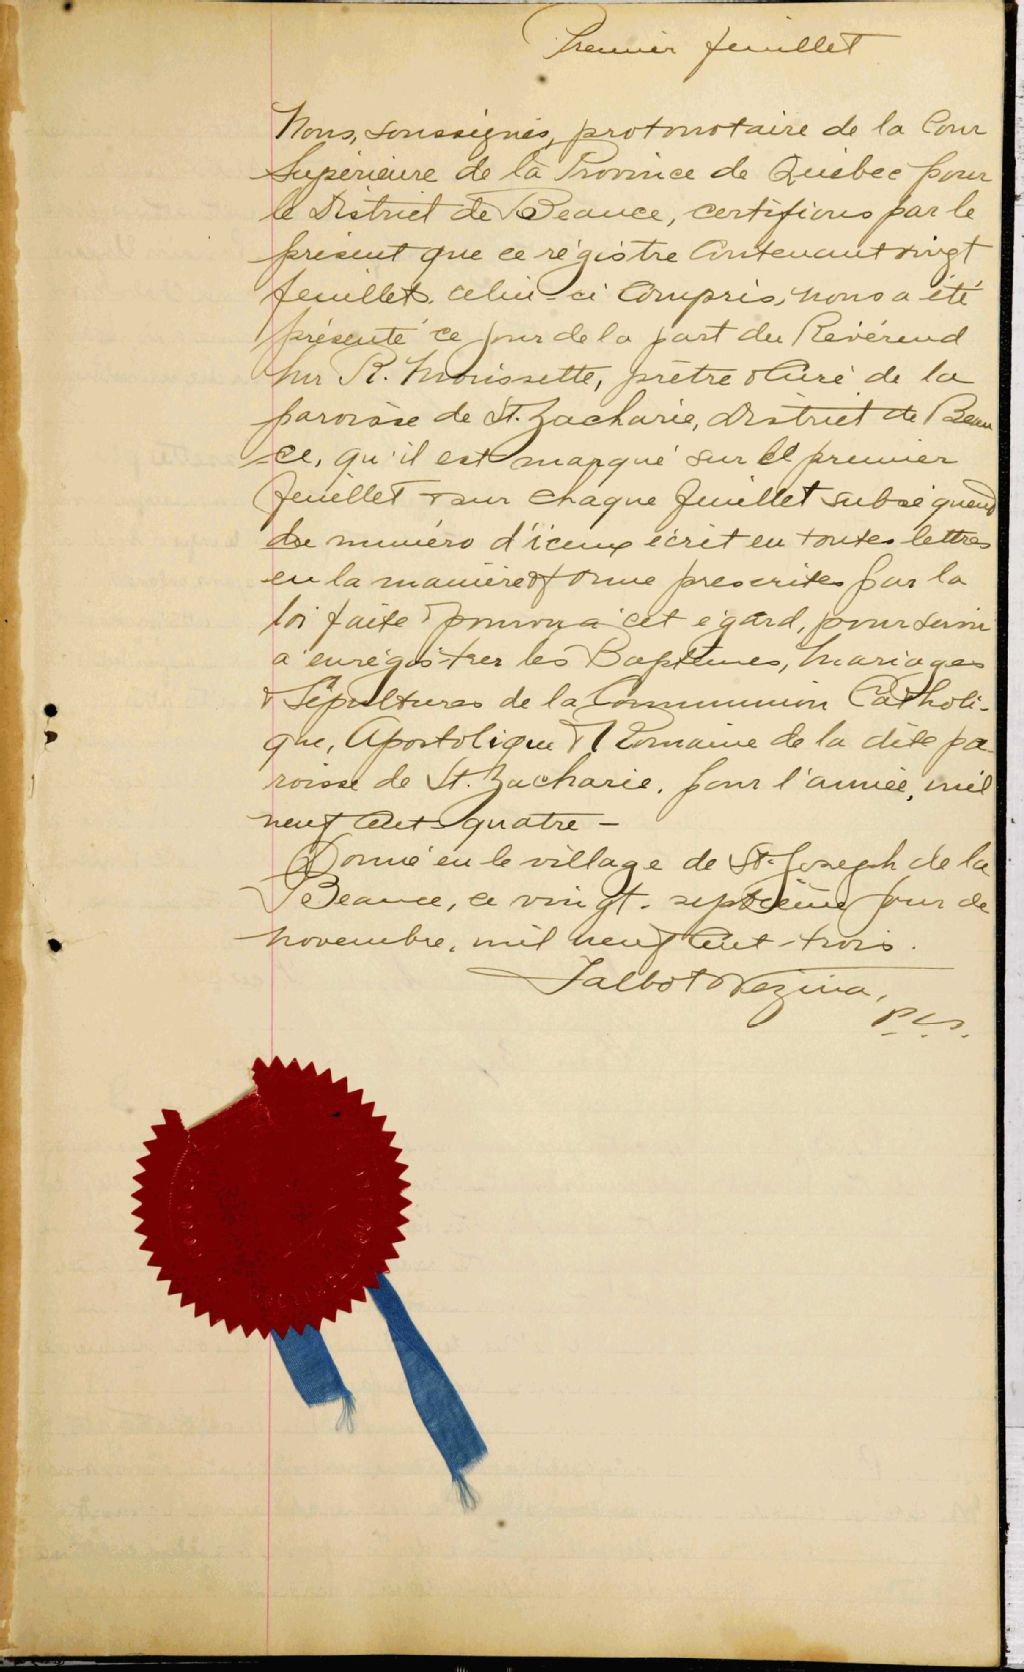 Premier feuillet
Nous, soussignés, protonotaire de la Cour
Supérieure de la Province de Québec pour
le District de Beauce, certifions par le
présent que ce régistre contenant vingt
feuillets, celui-ci compris, nous a été
présenté ce jour de la part du Révérend
Mr R. Morissette, prêtre & Curé de la
paroisse de St. Zacharie, District de Beau
-ce, qu'il est marqué sur le premier
feuillet & sur chaque feuillet subséquent
du numéro d'iceux écrit en toutes lettres
en la manière & forme prescrites par la
loi faite & pourvu à cet égard, pour servir
à enrégistrer les Baptêmes, Mariages
& Sépultures de la Communion Catholi-
que, Apostolique & Romaine de la dite pa-
roisse de St. Zacharie, pour l'année, mil
neuf cent quatre –
Donné en le village de St. Joseph de la
Beauce, ce vingt-septième jour de
novembre, mil neuf cent-trois.
Talbot & Vézina,
P.C.S.